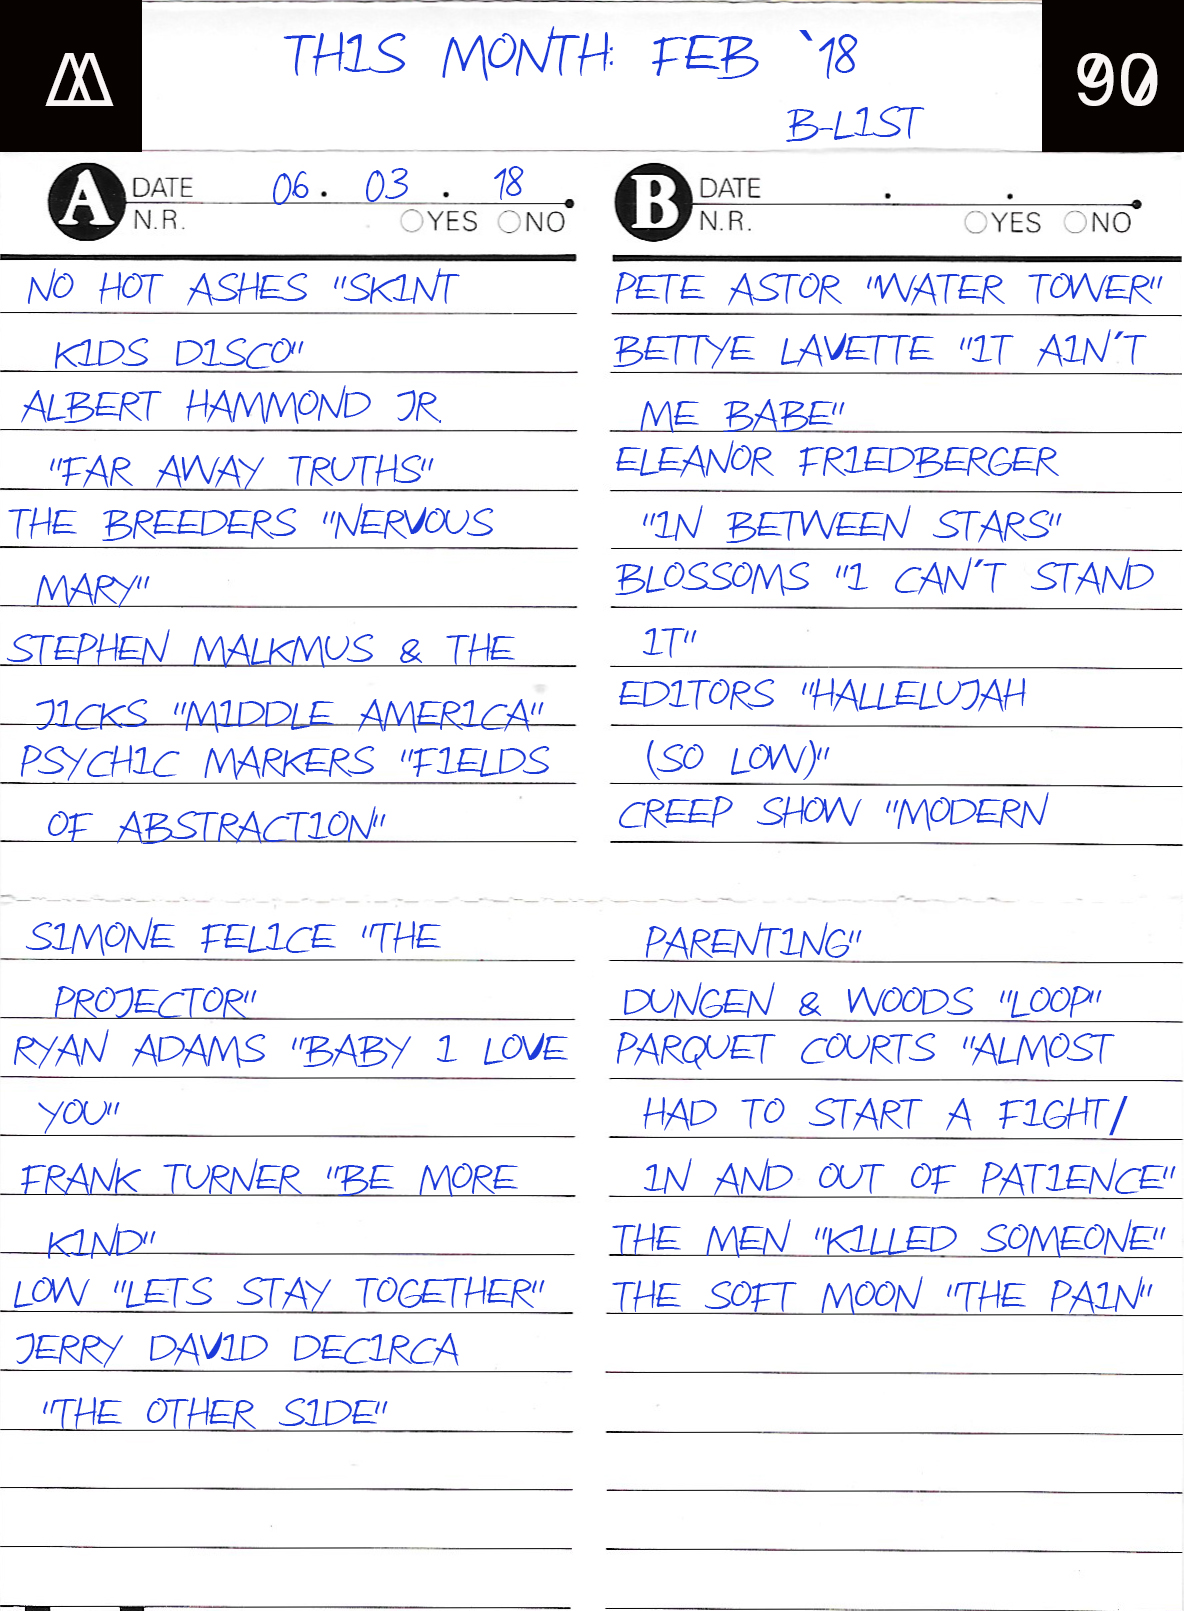 THIS MONTH: FEB `18
90
B-LIST
A DATE 06. 03 . 18
N.R. YES NO
NO HOT ASHES "SKINT
KIDS DISCO"
ALBERT HAMMOND JR.
"FAR AWAY TRUTHS"
THE BREEDERS "NERVOUS
MARY"
STEPHEN MALKMUS & THE
JICKS "MIDDLE AMERICA"
PSYCHIC MARKERS "FIELDS
OF ABSTRACTION"
SIMONE FELICE "THE
PROJECTOR"
RYAN ADAMS "BABY I LOVE
YOU"
FRANK TURNER "BE MORE
KIND"
LOW "LETS STAY TOGETHER"
JERRY DAVID DECIRCA
"THE OTHER SIDE"
B DATE . .
N.R. YES NO
PETE ASTOR "WATER TOWER"
BETTYE LAVETTE "IT AIN'T
ME BABE"
ELEANOR FRIEDBERGER
"IN BETWEEN STARS"
BLOSSOMS "I CAN'T STAND
IT"
EDITORS "HALLELUJAH
(SO LOW)"
CREEP SHOW "MODERN
PARENTING"
DUNGEN & WOODS "LOOP"
PARQUET COURTS "ALMOST
HAD TO START A FIGHT/
IN AND OUT OF PATIENCE"
THE MEN "KILLED SOMEONE"
THE SOFT MOON "THE PAIN"